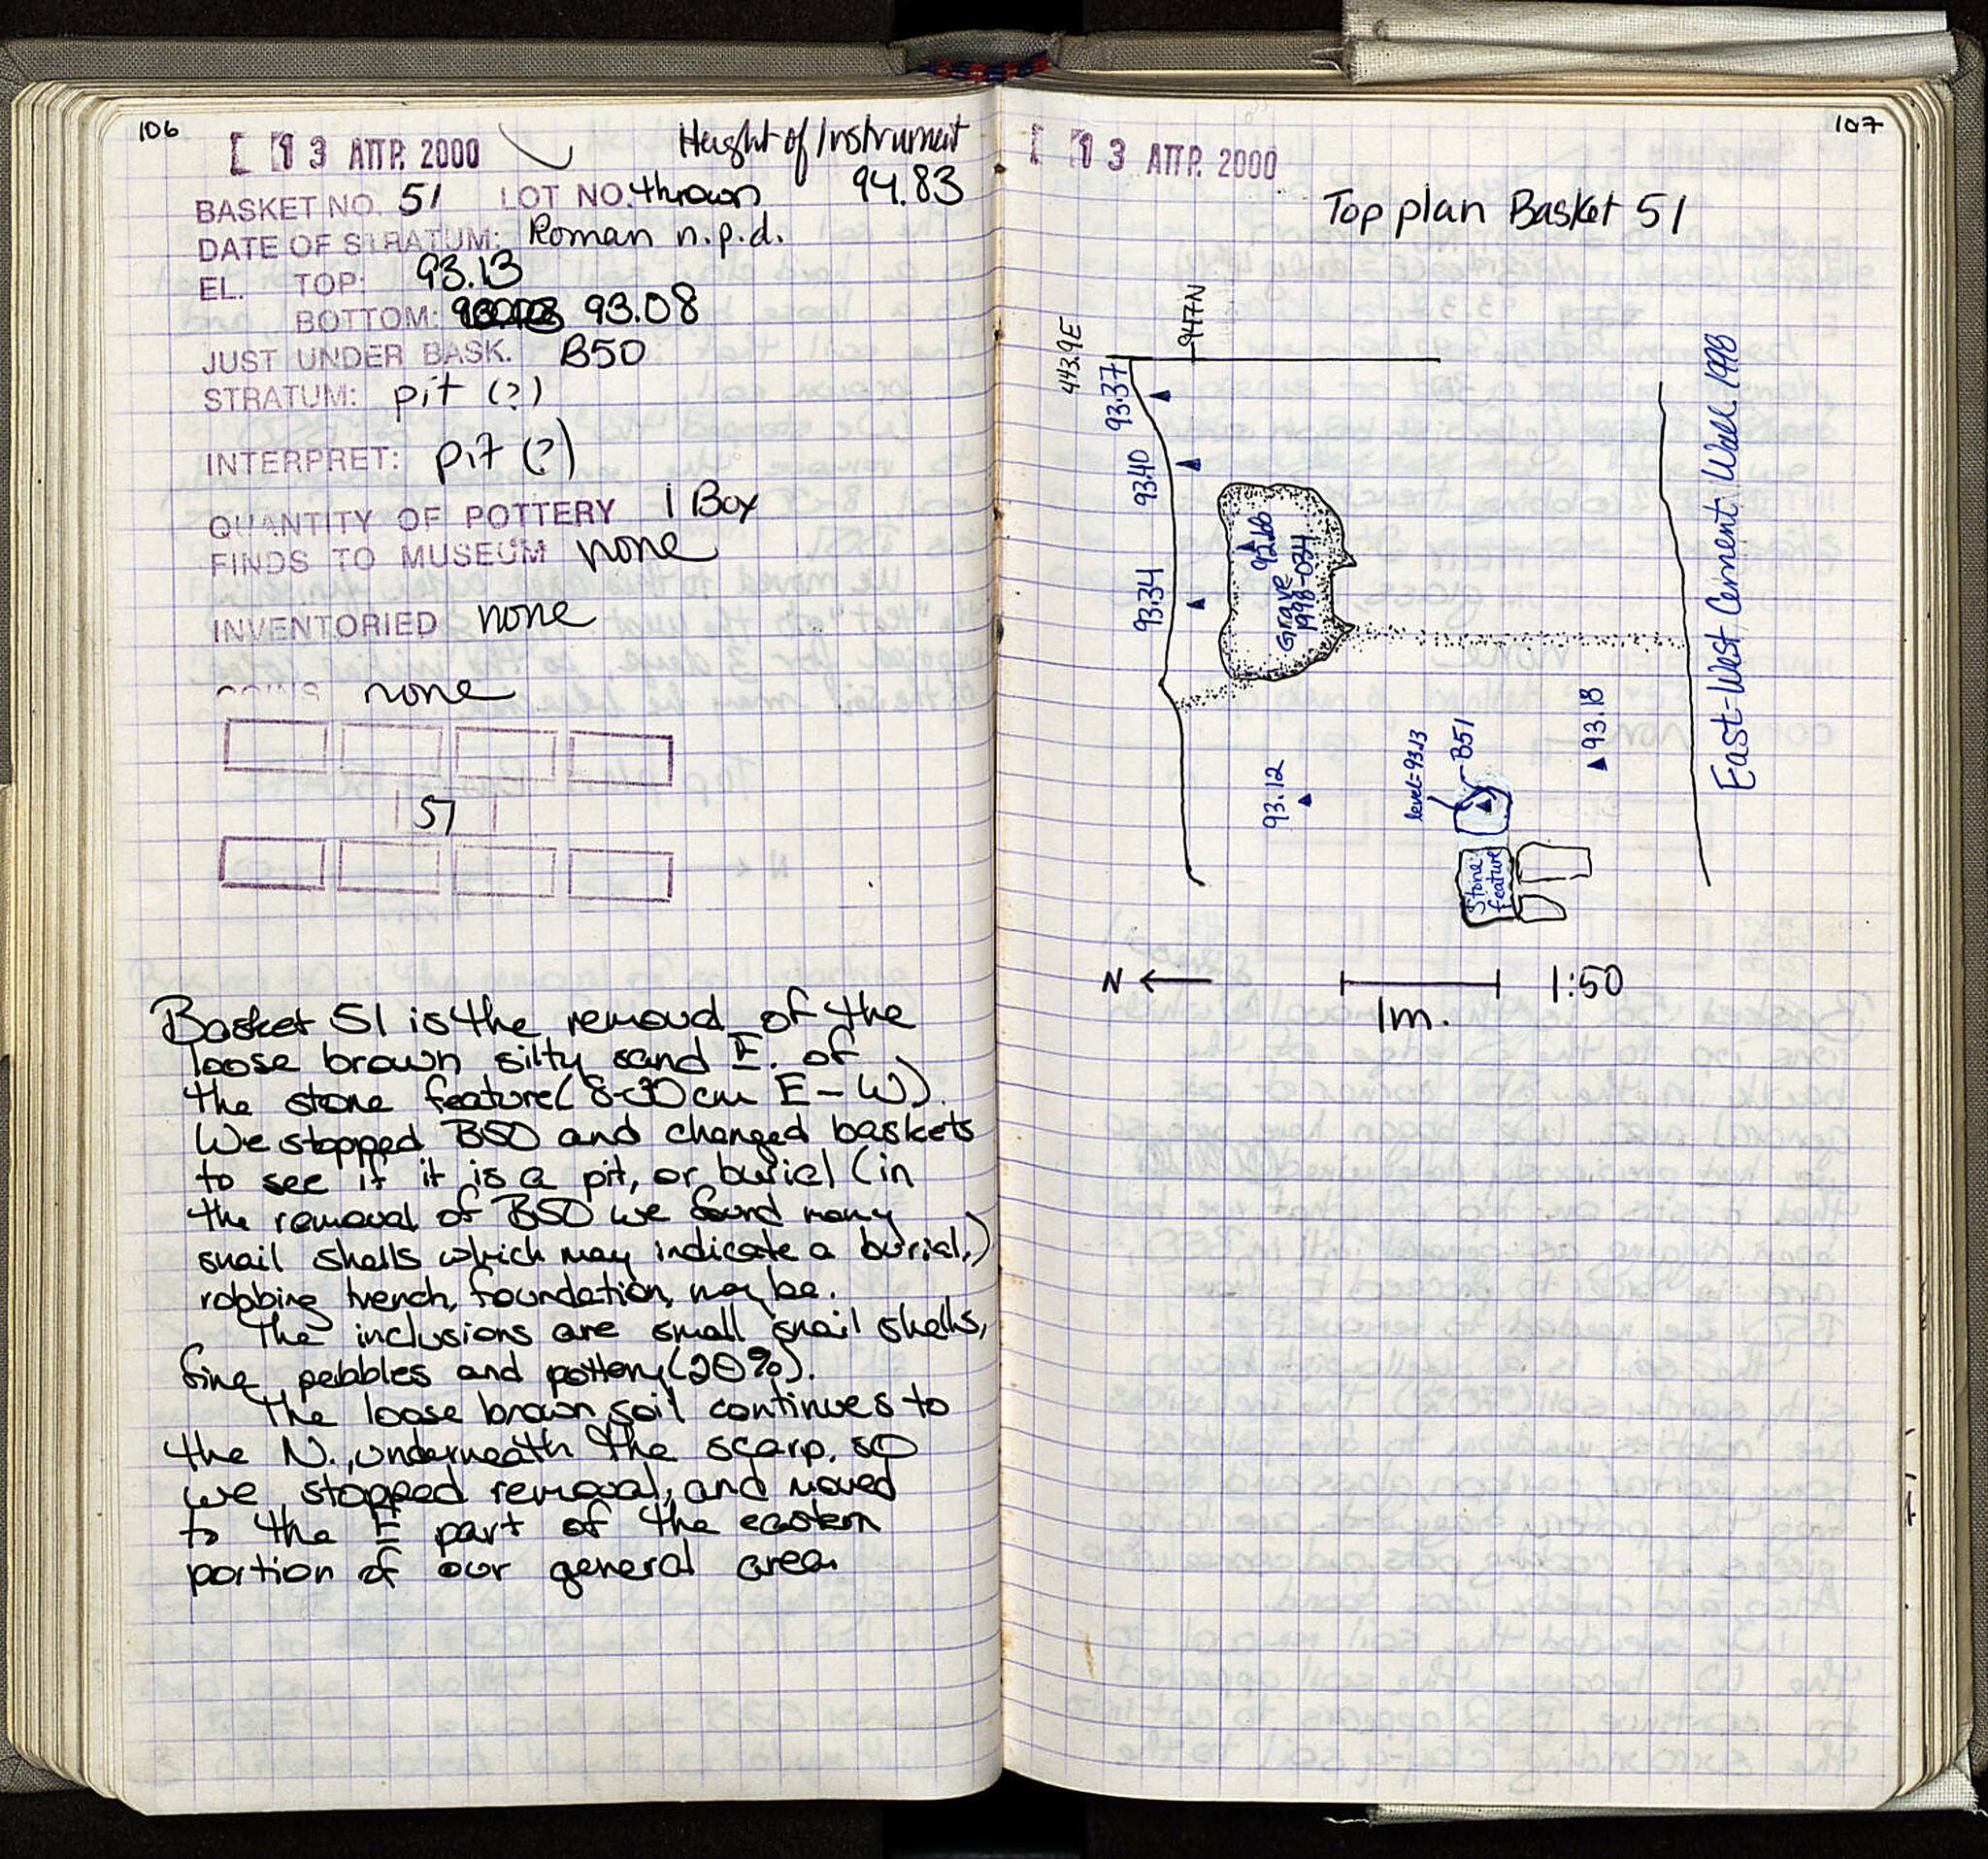 106
13 ΑΠΡ. 2000
Height of Instrument
94.83
BASKET NO. 51 LOT NO. thrown
DATE OF STRATUM: Roman n.p.d.
EL. TOP: 93.13
BOTTOM: 93.08
JUST UNDER BASK. B50
STRATUM: pit (?)
INTERPRET: pit (?)
QUANTITY OF POTTERY 1 Box
FINDS TO MUSEUM none
INVENTORIED none
COINS none
51
Basket 51 is the removal of the
loose brown silty sand E. of
the stone feature (8-30 cm E-W).
We stopped B50 and changed baskets
to see if it is a pit, or burial (in
the removal of B50 we found many
snail shells which may indicate a burial,)
robbing trench, foundation, maybe.
The inclusions are small snail shells,
fine pebbles and pottery (20%).
The loose brown soil continues to
the N., underneath the scarp, so
we stopped removal, and moved
to the E part of the eastern
portion of our general area
107
13 ΑΠΡ. 2000
Top plan Basket 51
443.9E
947N
93.37
93.40
93.34
92.66
Grave
1998-034
East-West Cement Wall, 1998
93.12
level=93.13
B51
93.18
Stone
feature
N
1m.
1:50